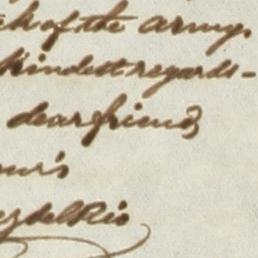 of the army.
kindest regards-
dear friend,
delRio